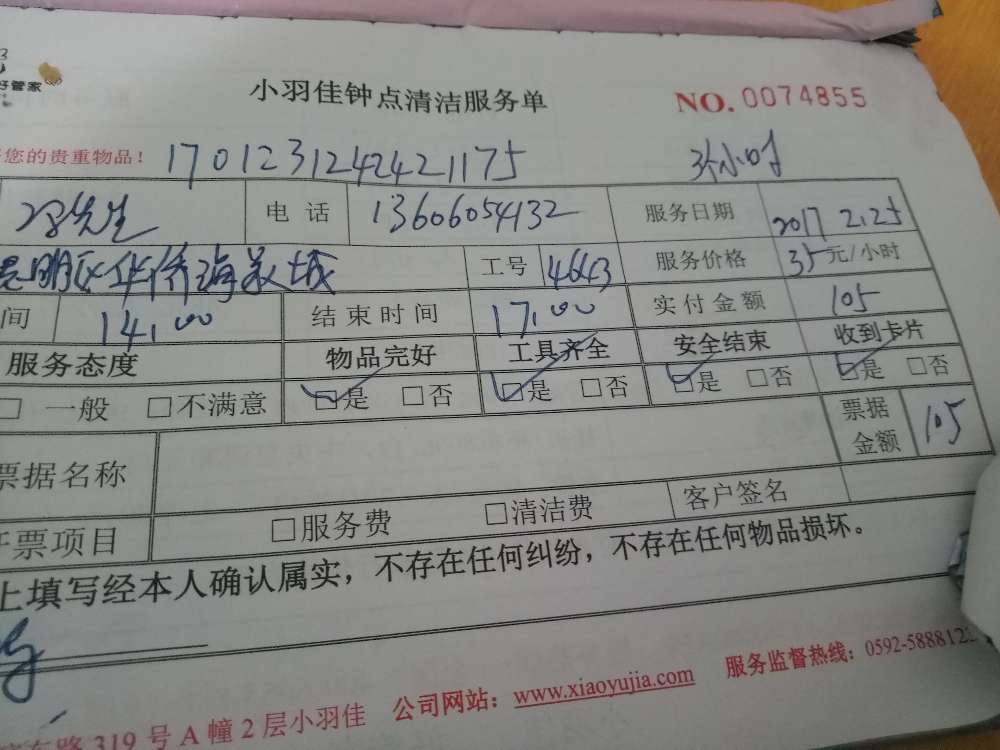 好管家
小羽佳钟点清洁服务单 NO. 0074855
您的贵重物品! 170123124242421175 3小时
先生 电话 13606054132 服务日期 2017 2.25
工号 4643 服务价格 35元/小时
间 14:00 结束时间 17:00 实付金额 105
服务态度 物品完好 工具齐全 安全结束 收到卡片
□ 一般 □不满意 ☑是 □否 ☑是 □否 ☑是 □否 ☑是 □否
票据名称 票据金额 105
票项目 □服务费 □清洁费 客户签名
上填写经本人确认属实，不存在任何纠纷，不存在任何物品损坏。
东路319号A幢2层小羽佳 公司网站：www.xiaoyujia.com 服务监督热线：0592-5888122